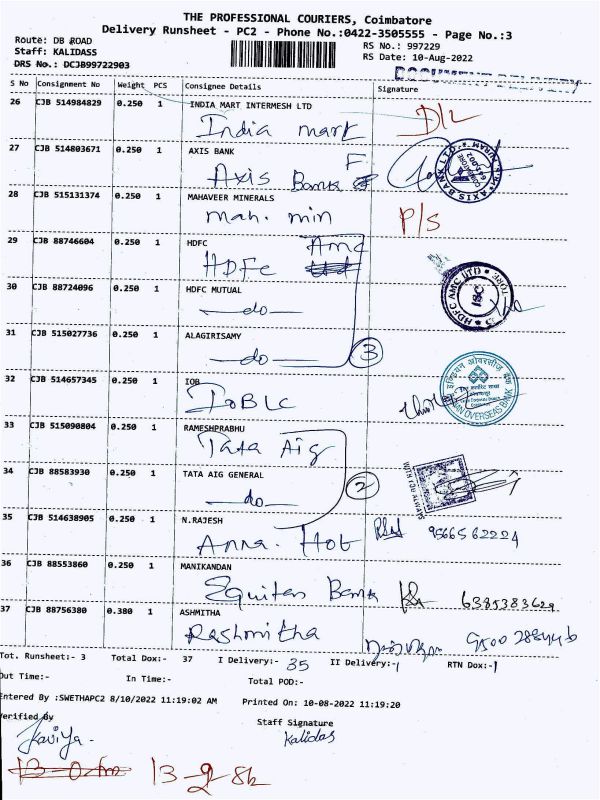 THE PROFESSIONAL COURIERS, Coimbatore
Delivery Runsheet - PC2 - Phone No.:0422-3505555 - Page No.:3
Route: DB ROAD
RS No.: 997229
Staff: KALIDASS
RS Date: 10-Aug-2022
DRS No.: DCJB99722903
DOCUMENT DELIVERY
S No Consignment No Weight PCS Consignee Details Signature
26 CJB 514984829 0.250 1 INDIA MART INTERMESH LTD
India mart D/L
27 CJB 514803671 0.250 1 AXIS BANK
Axis Bank F
AXIS BANK LTD
28 CJB 515131374 0.250 1 MAHAVEER MINERALS
mah. min P/S
29 CJB 88746604 0.250 1 HDFC
HDFC Amc
30 CJB 88724096 0.250 1 HDFC MUTUAL
—do—
HDFC AMC LTD
31 CJB 515027736 0.250 1 ALAGIRISAMY
—do— 3
32 CJB 514657345 0.250 1 IOB
IOBLC
इण्डियन ओवरसीज़ बैंक
INDIAN OVERSEAS BANK
33 CJB 515090804 0.250 1 RAMESHPRABHU
Tata Aig
34 CJB 88583930 0.250 1 TATA AIG GENERAL
—do— 2
WITH YOU ALWAYS
35 CJB 514638905 0.250 1 N.RAJESH
Anna. Hot 9566562224
36 CJB 88553860 0.250 1 MANIKANDAN
Equitas Bank 6385383629
37 CJB 88756380 0.380 1 ASHMITHA
Rashmitha 9500288446
Tot. Runsheet:- 3 Total Dox:- 37 I Delivery:- 35 II Delivery:-1 RTN Dox:-1
Out Time:- In Time:- Total POD:-
Entered By :SWETHAPC2 8/10/2022 11:19:02 AM Printed On: 10-08-2022 11:19:20
Verified By Staff Signature
Kaviya. Kalidas